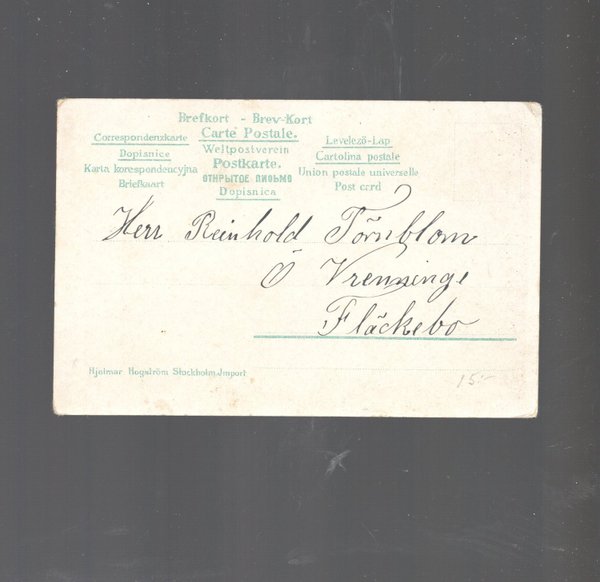 Brefkort - Brev-Kort
Correspondenzkarte
Carte Postale.
Levelező-Lap
Dopisnice
Weltpostverein
Cartolina postale
Karta korespondencyjna
Postkarte.
Union postale universelle
Briefkaart
ОТКРЫТОЕ ПИСЬМО
Post card
Dopisnica
Herr Reinhold Törnblom
Ö Vrenninge
Fläckebo
Hjalmar Hagström Stockholm. Import
15:-